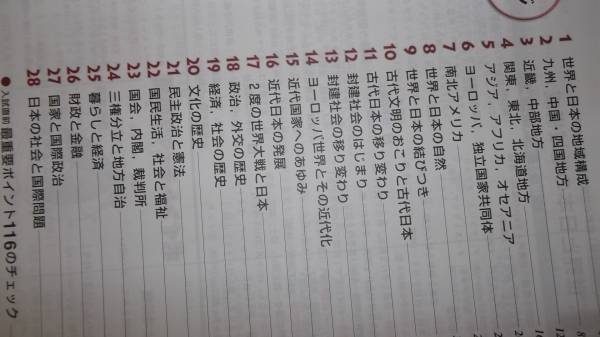 1 世界と日本の地域構成
2 九州，中国・四国地方
3 近畿，中部地方
4 関東，東北，北海道地方
5 アジア，アフリカ，オセアニア
6 ヨーロッパ，独立国家共同体
7 南北アメリカ
8 世界と日本の自然
9 世界と日本の結びつき
10 古代文明のおこりと古代日本
11 古代日本の移り変わり
12 封建社会のはじまり
13 封建社会の移り変わり
14 ヨーロッパ世界とその近代化
15 近代国家へのあゆみ
16 近代日本の発展
17 2度の世界大戦と日本
18 政治，外交の歴史
19 経済，社会の歴史
20 文化の歴史
21 民主政治と憲法
22 国民生活，社会と福祉
23 国会，内閣，裁判所
24 三権分立と地方自治
25 暮らしと経済
26 財政と金融
27 国家と国際政治
28 日本の社会と国際問題
●入試直前 最重要ポイント116のチェック